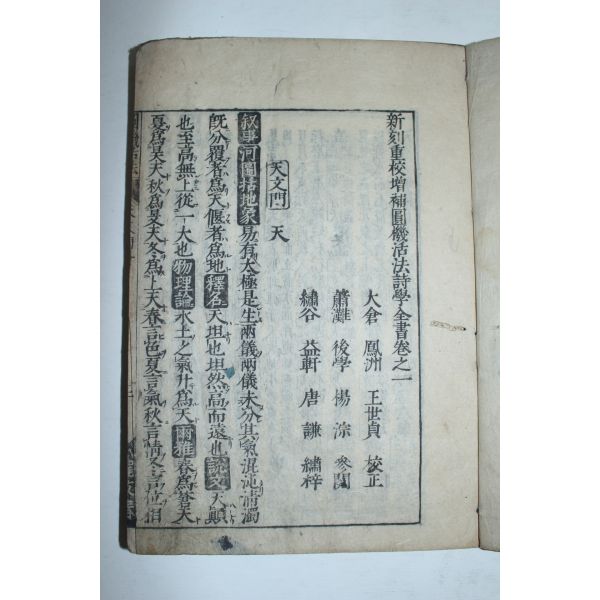 新刻重校增補圓機活法詩學全書卷之一
大倉 鳳洲 王世貞 校正
蕭灘 後學 楊淙 參閱
繡谷 益軒 唐謙 繡梓
天文門 天
叙事 河圖括地象 易有太極是生兩儀兩儀未分其氣混沌清濁
既分覆者爲天偃者爲地 釋名 天坦也坦然高而遠也 說文 天顚
也至高無上從一大也 物理論 水土之氣升爲天 爾雅 春爲蒼天
夏爲昊天秋爲旻天冬爲上天春言色夏言氣秋言情冬言位相